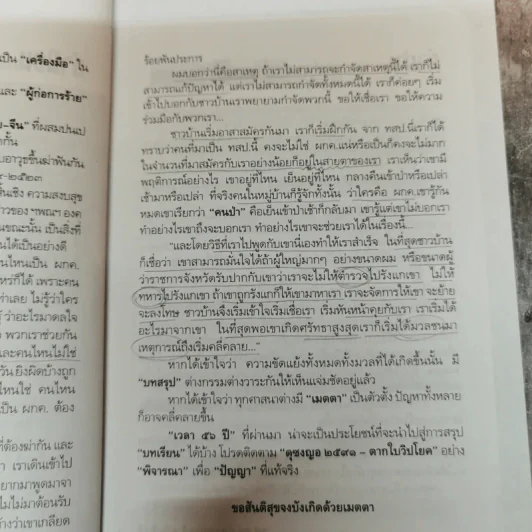 เป็น "เครื่องมือ" ใน
และ "ผู้ก่อการร้าย"
-จีน" ที่ผสมปนเป
กั้น
บอาวุธขึ้นฆ่าฟันกัน
-๒๕๒๓
ในเชิง ความสงบสุข
ขณะนั้น เป็นสิ่งที่
นได้เป็นอย่างดี
นเป็น ผกค.
หร่ก็ได้ เพราะคน
ว่าเลย ไม่รู้ว่าใคร
รู้ ว่าอะไรมาดลใจ
ๆ พวกเราช่วยกัน
และคนไหนไม่ใช่
วัน ยิงผิดบ้างถูก
ไหนใช่ คนไหน
เป็น ผกค. ต้อง
ที่ต้องฆ่ากัน และ
ๆ เราเดินเข้าไป
ยากมาพูดมาจา
ไม่ไม่มาต้อนรับ
ว่าเขาเกลียด
ร้อยพันประการ
ผมบอกว่านี่คือสาเหตุ ถ้าเราไม่สามารถจะกำจัดสาเหตุนี้ได้ เราก็ไม่
สามารถแก้ปัญหาได้ แต่เราสามารถกำจัดทั้งหมดนี้ได้ เราก็ค่อยๆ เริ่ม
เข้าไปบอกกับชาวบ้านเราพยายามกำจัดพวกนี้ ขอให้เชื่อเรา ขอให้ความ
ร่วมมือกับพวกเรา...
ชาวบ้านเริ่มอาสาสมัครกันมา เราก็เริ่มฝึกกัน จาก ทสป.นี่เราก็ได้
ทราบว่าคนที่มาเป็น ทสป.นี้ คงจะไม่ใช่ ผกค.แน่หรือเป็นก็คงจะไม่มาก
ในจำนวนที่มาสมัครกับเราอย่างน้อยก็อยู่ในสายตาของเรา เราเห็นว่าเขามี
พฤติการณ์อย่างไร เขาอยู่ที่ไหน เย็นอยู่ที่ไหน กลางคืนเข้าป่าหรือเปล่า
เช้ามาหรือเปล่า ที่จริงคนในหมู่บ้านก็รู้จักทั้งนั้น ว่าใครคือ ผกค.เขารู้กัน
หมดเขาเรียกว่า "คนป่า" คือเย็นเข้าป่าเช้าก็กลับมา เขารู้แต่เขาไม่บอกเรา
ทำอย่างไรเขาถึงจะบอกเรา ทำอย่างไรเราจะช่วยเราได้ในเรื่องนี้...
"และโดยวิธีที่เราไปพูดกับเขานี่เองทำให้เราสำเร็จ ในที่สุดชาวบ้าน
ก็เชื่อว่า เขาสามารถมั่นใจได้ถ้าผู้ใหญ่มากๆ อย่างขนาดผม หรือขนาดผู้
ว่าราชการจังหวัดรับปากกับเขาว่าเราจะไม่ให้ตำรวจไปรังแกเขา ไม่ให้
ทหารไปรังแกเขา ถ้าเขาถูกรังแกก็ให้เขามาหาเรา เราจะจัดการให้เขา จะย้าย
จะลงโทษ ชาวบ้านจึงเริ่มเข้าใจเริ่มเชื่อเรา เริ่มหันหน้าคุยกับเรา เราเริ่มได้
อะไรมาจากเขา ในที่สุดพอเขาเกิดศรัทธาสูงสุดเราก็เริ่มได้มวลชนมา
เหตุการณ์ถึงเริ่มคลี่คลาย..."
หากได้เข้าใจว่า ความขัดแย้งทั้งหมดทั้งมวลที่ได้เกิดขึ้นนั้น มี
"บทสรุป" ต่างกรรมต่างวาระกันให้เห็นแจ่มชัดอยู่แล้ว
หากได้เข้าใจว่า ทุกศาสนาต่างมี "เมตตา" เป็นตัวตั้ง ปัญหาทั้งหลาย
ก็อาจคลี่คลายขึ้น
"เวลา ๕๖ ปี" ที่ผ่านมา น่าจะเป็นประโยชน์ที่จะนำไปสู่การสรุป
"บทเรียน" ได้บ้าง โปรดติดตาม "ดุซงญอ ๒๔๙๑ – ตากใบวิปโยค" อย่าง
"พิจารณา" เพื่อ "ปัญญา" ที่แท้จริง
ขอสันติสุขจงบังเกิดด้วยเมตตา